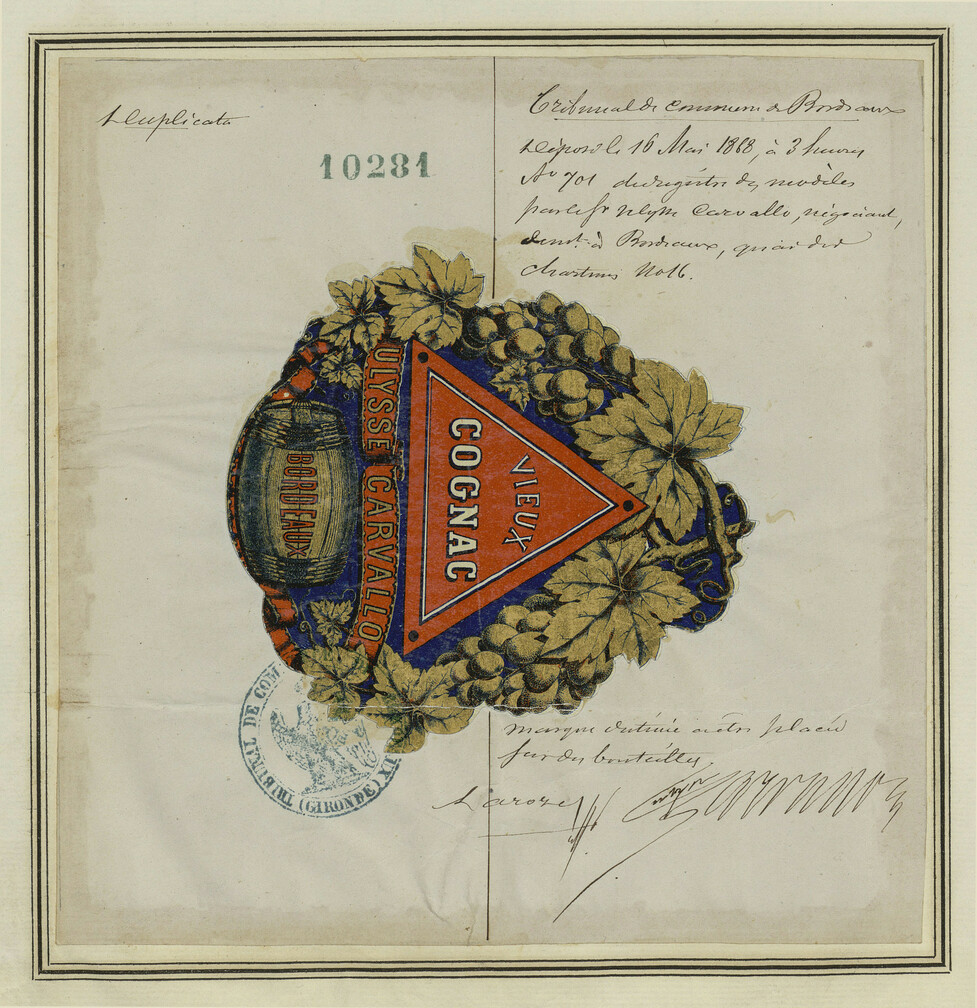 Duplicata
10281
Tribunal de commerce de Bordeaux
Déposé le 16 Mai 1868, à 3 heures
No 701 du registre des modèles
par le Sr Ulysse Carvallo, négociant,
demt à Bordeaux, quai des
Chartrons No 16.
VIEUX
COGNAC
ULYSSE CARVALLO
BORDEAUX
TRIBUNAL DE COM
UX
(GIRONDE)
marque destinée à être placée
sur des bouteilles
Laroze